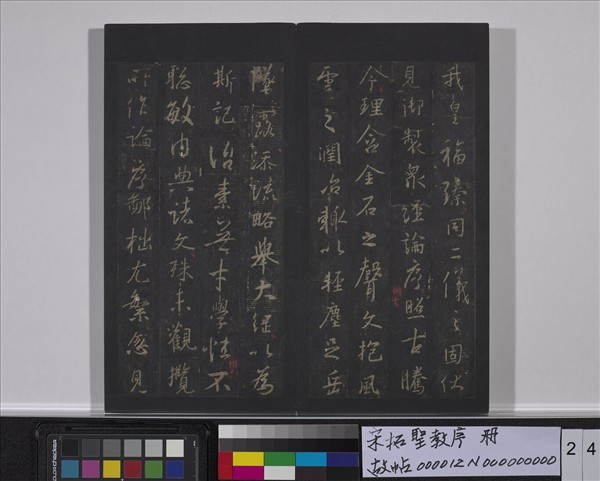 我皇福臻同二儀之固伏
見御製眾經論序照古騰
今理含金石之聲文抱風
雲之潤治輒以輕塵足岳
墜露添流略舉大綱以為
斯記 治素無才學性不
聰敏內典諸文殊未觀攬
所作論序鄙拙尤繁忽見
宋拓聖教序 冊
故帖000012N000000000
2 4